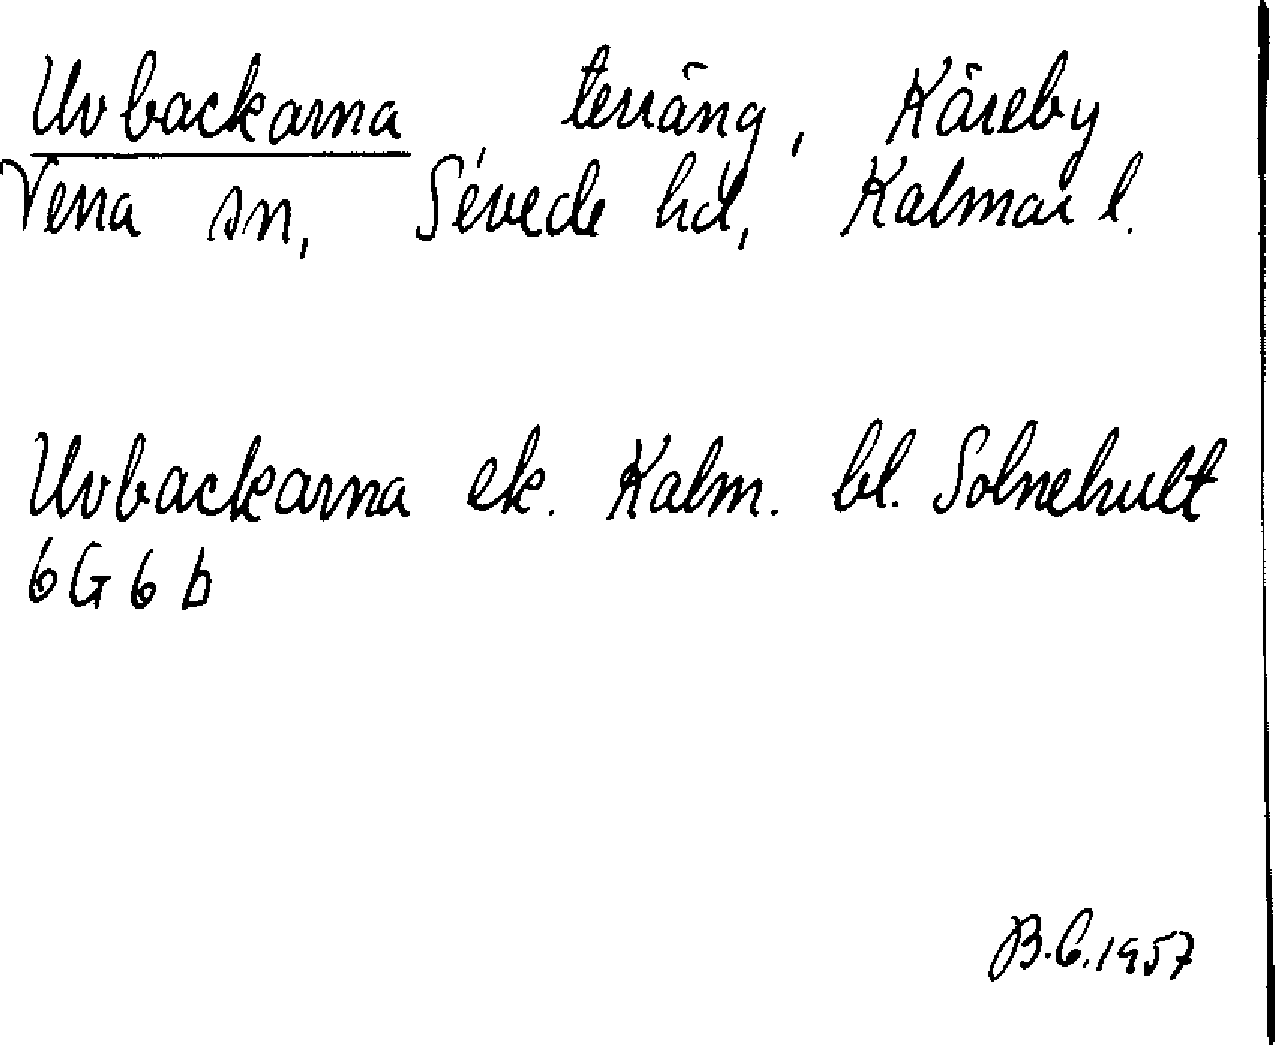 Uvbackarna terräng, Käreby
Vena sn, Sévede hd, Kalmar l.
Uvbackarna ek. Kalm. bl. Solnehult
6G6b
B.C.1957